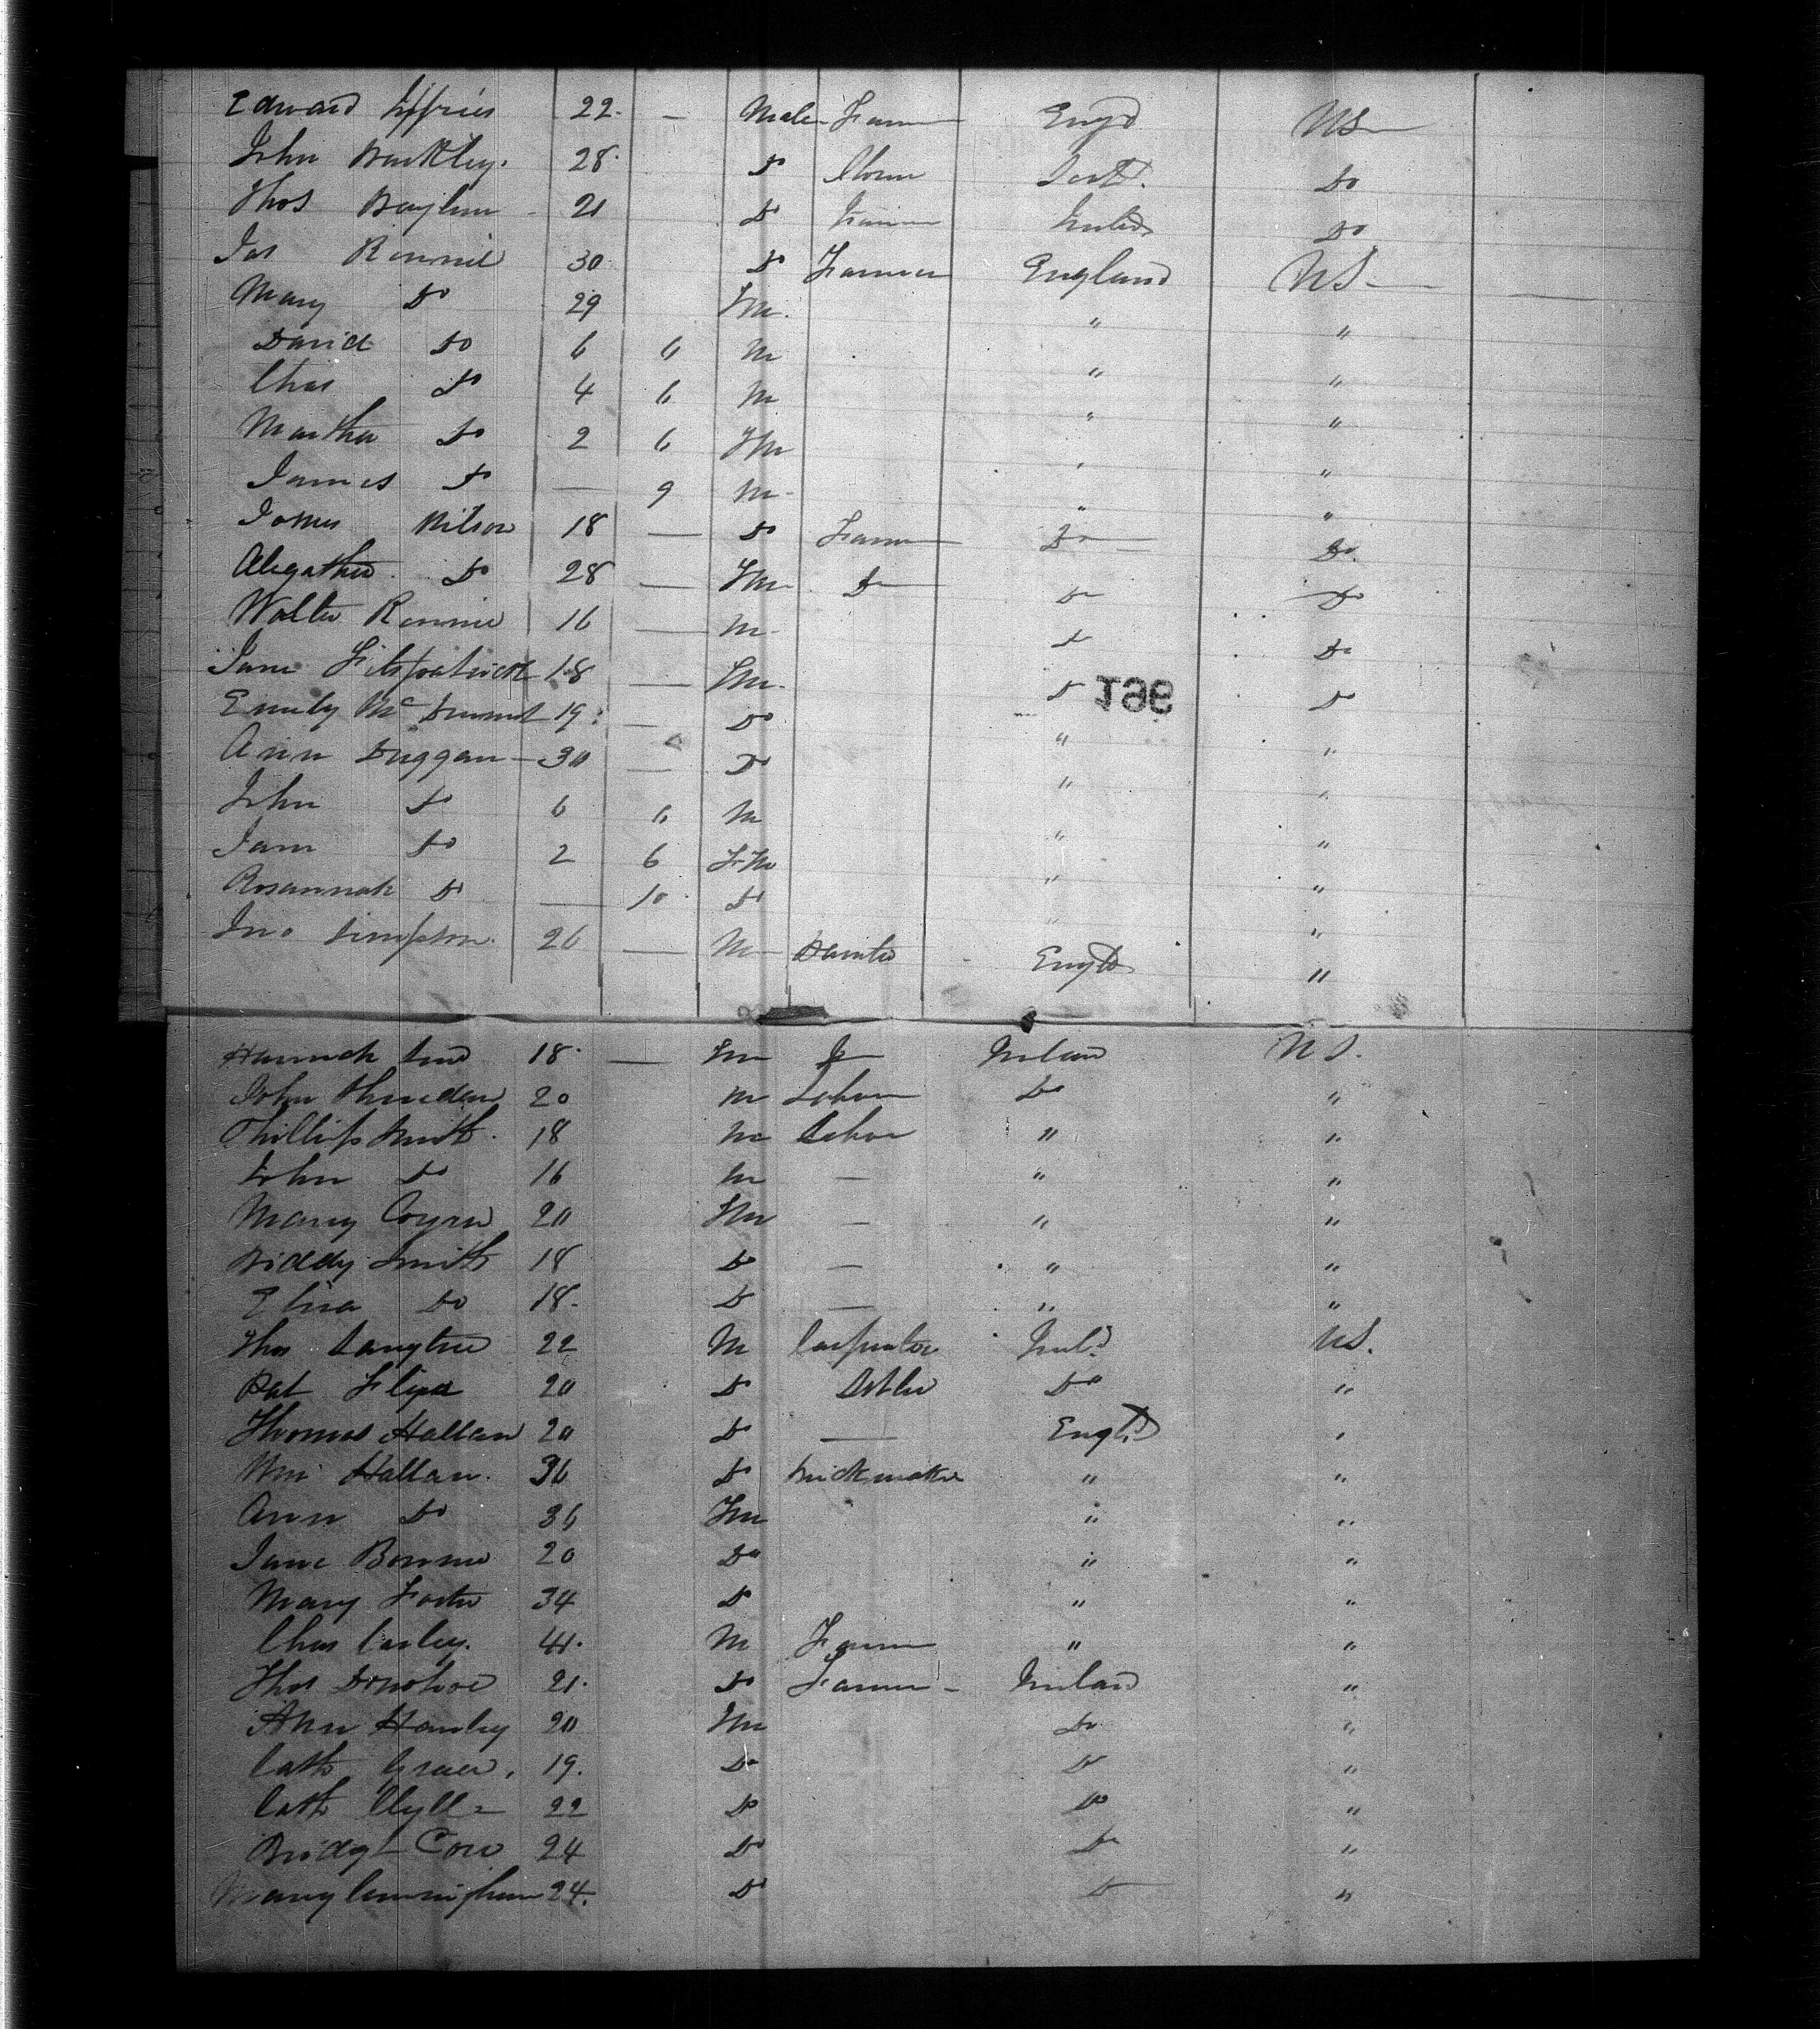 Edward Jeffries 22 — Male Farmer Engd US
John Barkley. 28 Do Scotd. Do
Thos 21 Do Farmer Ireld Do
Jas Rennie 30 Do Farmer England US —
Mary Do 29 Fm. " "
David Do 6 6 M " "
Chas Do 4 6 M " "
Martha Do 2 6 Fm " "
James Do — 9 M - " "
James Wilson 18 — Do Farmer Do Do
Do 28 — Fm Do Do Do
Walter Rennie 16 — M Do Do
Jane Fitzpatrick 18 — Fm. Do Do
196
Emily Mc Dermot 19 — Do " "
Ann Duggan — 30 — Do " "
John Do 6 6 M " "
Jane Do 2 6 Fm " "
Rosannah Do — 10 Do " "
Jno Simpson 26 — M Painter Engld "
Hannah 18 — Fm Ireland US.
John Sheridan 20 M Labour Do "
Phillip Smith 18 M Labor " "
John Do 16 M — " "
Mary Coyne 20 Fm — " "
Biddy Smith 18 Do — " "
Eliza Do 18 Do — " "
Thos Langtree 22 M Carpenter Ireld US.
Pat 20 Do Do "
Thomas Hallam 20 Do — Engld "
Wm Hallam. 36 Do Brickmaker " "
Ann Do 36 Fm " "
Jane 20 Do " "
Mary Foster 34 Do " "
Chas Carley. 41. M Farmer " "
Thos Donohoe 21. Do Farmer — Ireland "
Ann Hanley 20 Fm Do "
Cath 19. Do Do "
Cath 22 Do Do "
Bridgt 24 Do Do "
Mary Cunningham 24. Do Do "